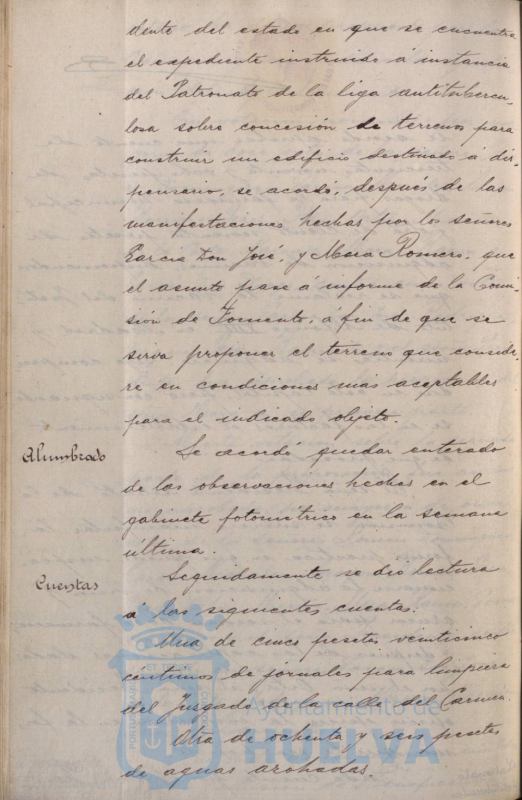 dente del estado en que se encuentra
el expediente instruido á instancia
del Patronato de la liga antitubercu-
losa sobre concesión de terrenos para
construir un edificio destinado á dis-
pensario, se acordó, después de las
manifestaciones hechas por los señores
Garcia Don José, y Mora Romero, que
el asunto pase á informe de la Comi-
sión de Fomento, á fin de que se
sirva proponer el terreno que conside-
re en condiciones mas aceptables
para el indicado objeto.
Alumbrado
Se acordó quedar enterado
de las observaciones hechas en el
gabinete fotométrico en la semana
última.
Cuentas
Seguidamente se dió lectura
á las siguientes cuentas.
Una de cinco pesetas veinticinco
céntimos de jornales para limpieza
del Juzgado de la calle del Carmen.
Otra de ochenta y seis pesetas
de aguas arobadas.
Ayuntamiento de
HUELVA